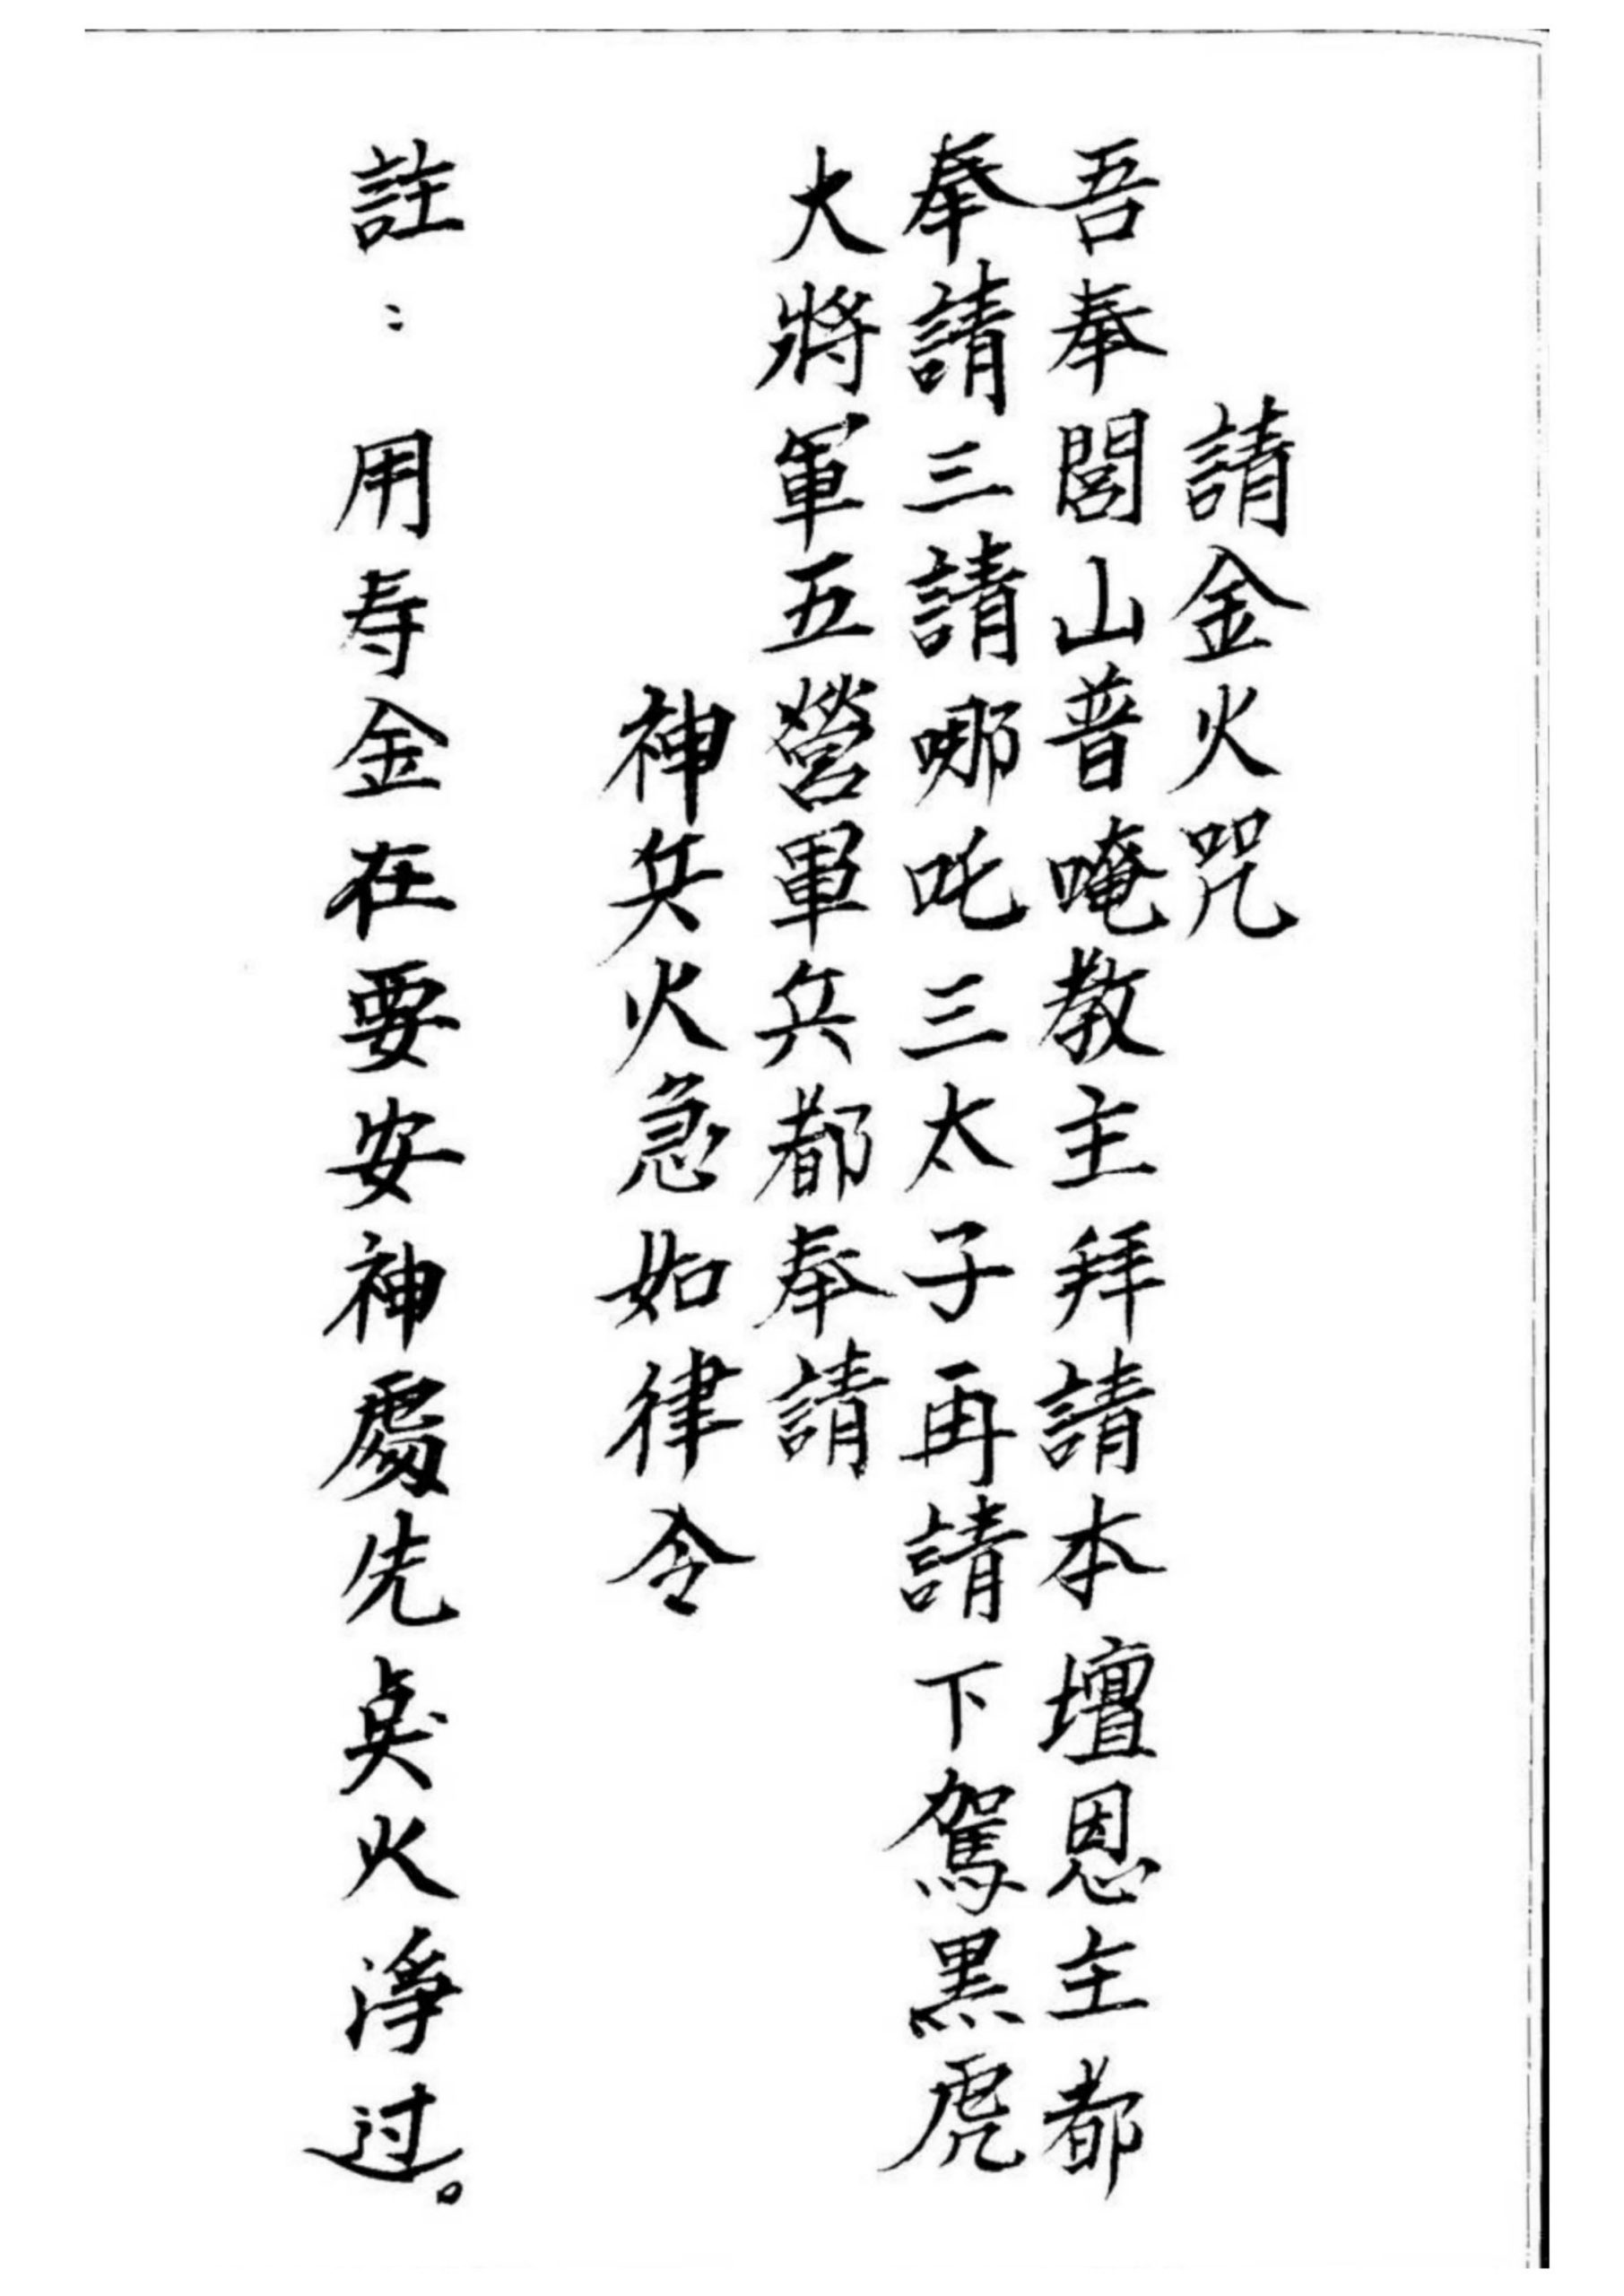 請金火咒
吾奉閭山普唵教主拜請本壇恩主都
奉請三請哪吒三太子再請下駕黑虎
大將軍五營軍兵都奉請
神兵火急如律令
註：用寿金在要安神處先奌火淨过。